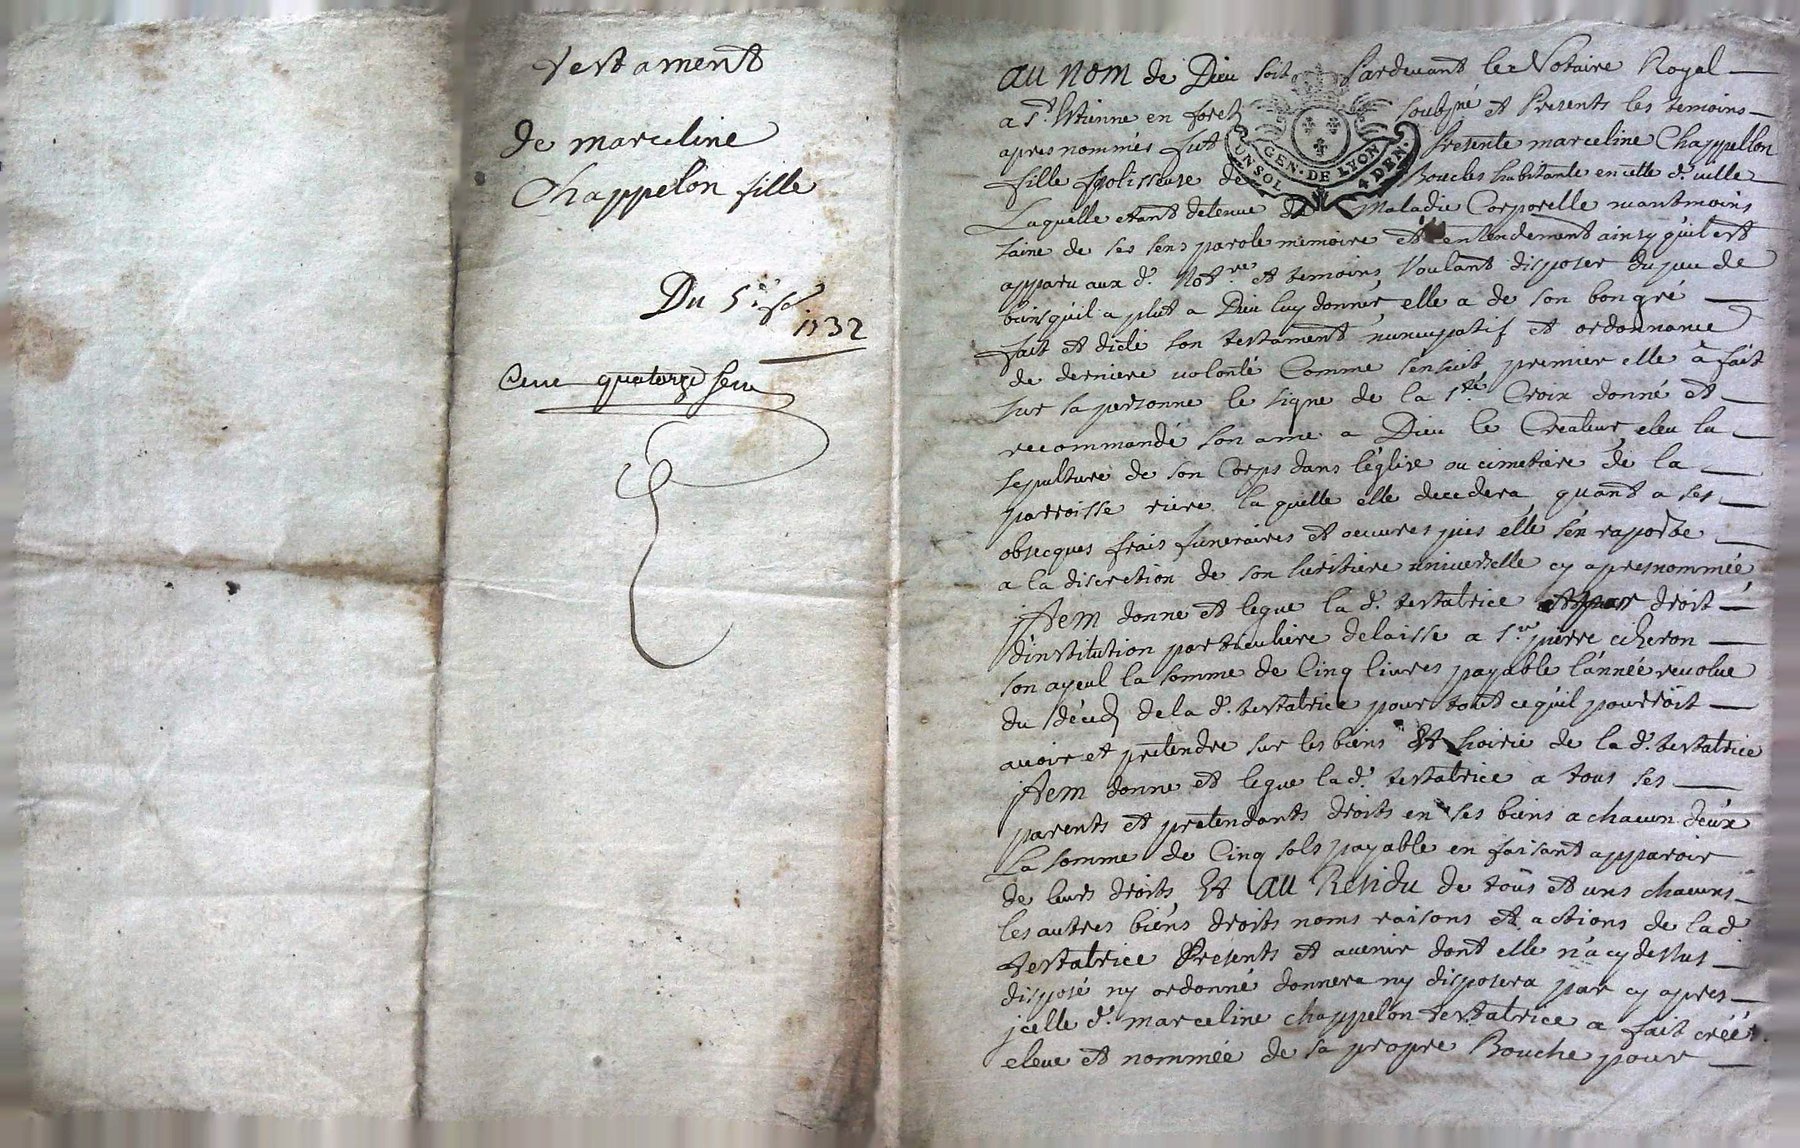 testament
de marceline
Chappelon fille
Du 5e
1732
quatorze
au nom de Dieu soit Pardevant le Notaire Royal
a St. Etienne en forest soubsné et Presents les temoins
apres nommés fut Presente marceline Chappellon
fille polisseuse de Boucles habitante en cette d. ville
Laquelle etant detenue de Maladie Corporelle neantmoins
saine de ses sens parole memoire et entendement ainsy quil est
apparu aux d. Notre. et temoins Voulant disposer du peu de
biens quil a plut a Dieu luy donner elle a de son bon gré
fait et dicté son testament nuncupatif et ordonnance
de derniere volonté Comme sensuit premier elle à fait
sur sa personne le signe de la Ste. Croix donné et
recommandé son ame a Dieu le Createur eleu la
sepulture de son Corps dans léglise ou cimetiere de la
parroisse riere la quelle elle decedera quant a ses
obsecques frais funeraires et oeuvres pies elle sén raporte
a la discretion de son heritiere universelle cy apres nommée
jtem donne et legue la d. testatrice et par droit
dinstitution particuliere delaisse a Sr. pierre ciheron
son ayeul la somme de Cinq livres payable lánnée revolue
du déced de la d. testatrice pour tout ce quil pourroit
avoir et pretendre sur les biens et hoirie de la d. testatrice
jtem donne et legue la d. testatrice a tous ses
parents et pretendants droits en ses biens a chacun déux
La somme de Cinq sols payable en faisant apparoir
de leurs droits Et au Residu de tous et uns chacuns
les autres biéns droits noms raisons et actions de la d.
testatrice Présents et avenir dont elle na cy dessus
disposé ny ordonné donnera ny disposera par cy apres
jcelle d. marceline chappelon testatrice a fait créé
eleue et nommée de sa propre Bouche pour
GEN. DE LYON
UN SOL 4 DEN.